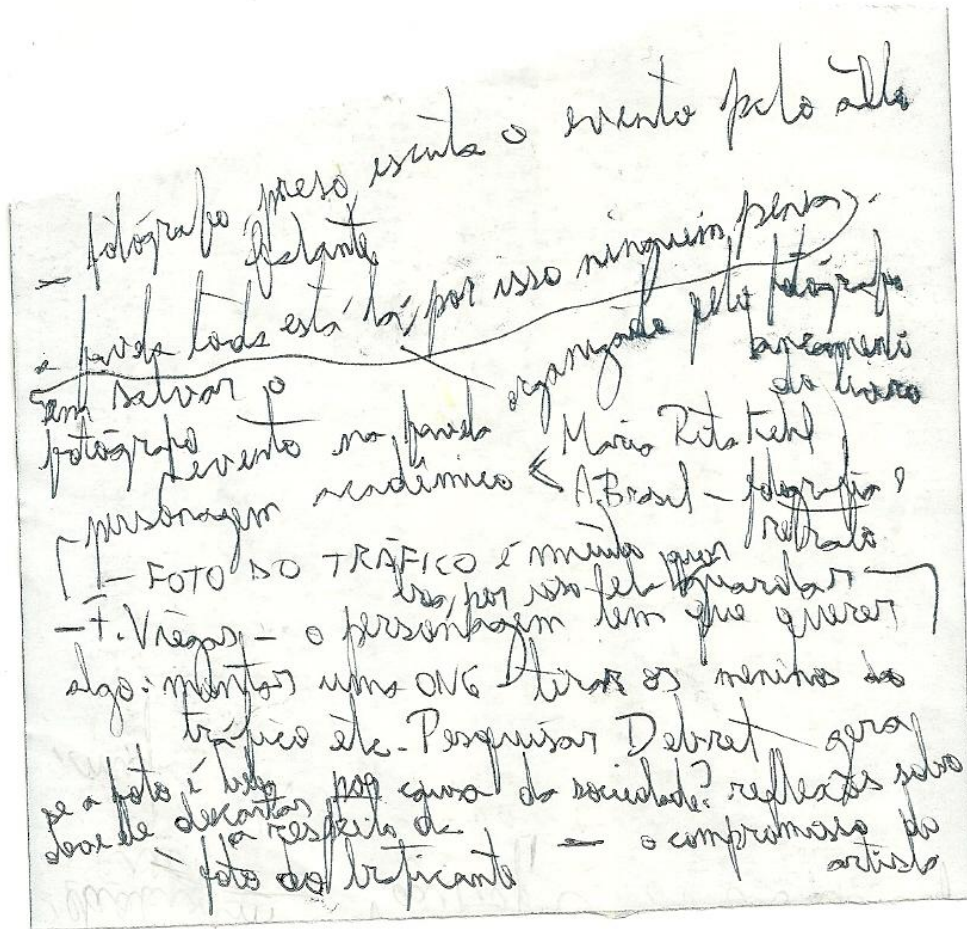 fotógrafo preso, escuta o evento pelo alto
– falante
a favela toda está lá, por isso ninguém pensa
em salvar o organizado pelo fotógrafo
fotógrafo lançamento
do livro
evento na favela
personagem acadêmico < Maria Rita Kehl
A. Brasil – fotografia?
retrato
– FOTO DO TRÁFICO é minha
por isso guardar
– F. Viegas – o personagem tem que querer
algo: montar uma ONG tirar os meninos do
tráfico etc. Pesquisar Debret gerar
se a foto é bela por causa da sociedade? reflexões sobre
deve descartar a respeito da – o compromisso do
foto do traficante artista